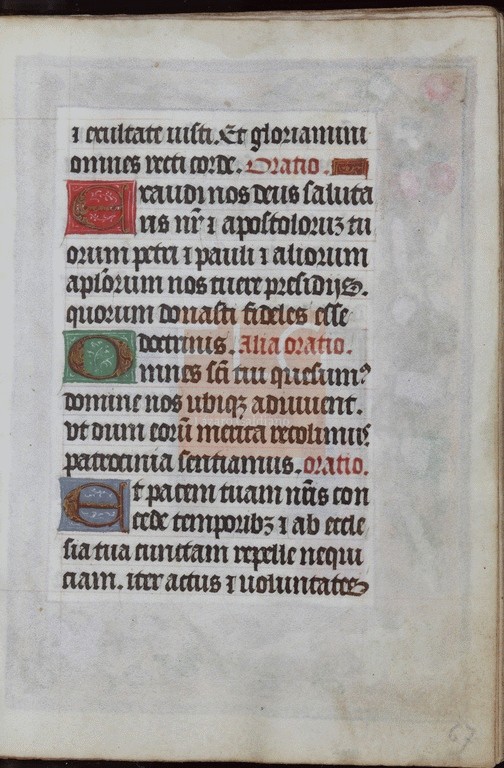 ⁊ exultate iusti. Et gloriamini
omnes recti corde. Oratio.
Exaudi nos deus saluta
ris nr̄ ⁊ apostoloruꝫ tu
orum petri ⁊ pauli ⁊ aliorum
apl̄orum nos tuere presidijs.
quorum donasti fideles esse
doctrinis. Alia oratio.
Omnes sc̄i tui quesum?
domine nos ubiqꝫ adiuuent.
vt dum eorū merita recolimus
patrocinia sentiamus. oratio.
Et pacem tuam nr̄is con
cede temporibꝫ ⁊ ab eccle
sia tua cunctam repelle nequi
ciam. iter actus ⁊ uoluntates
67